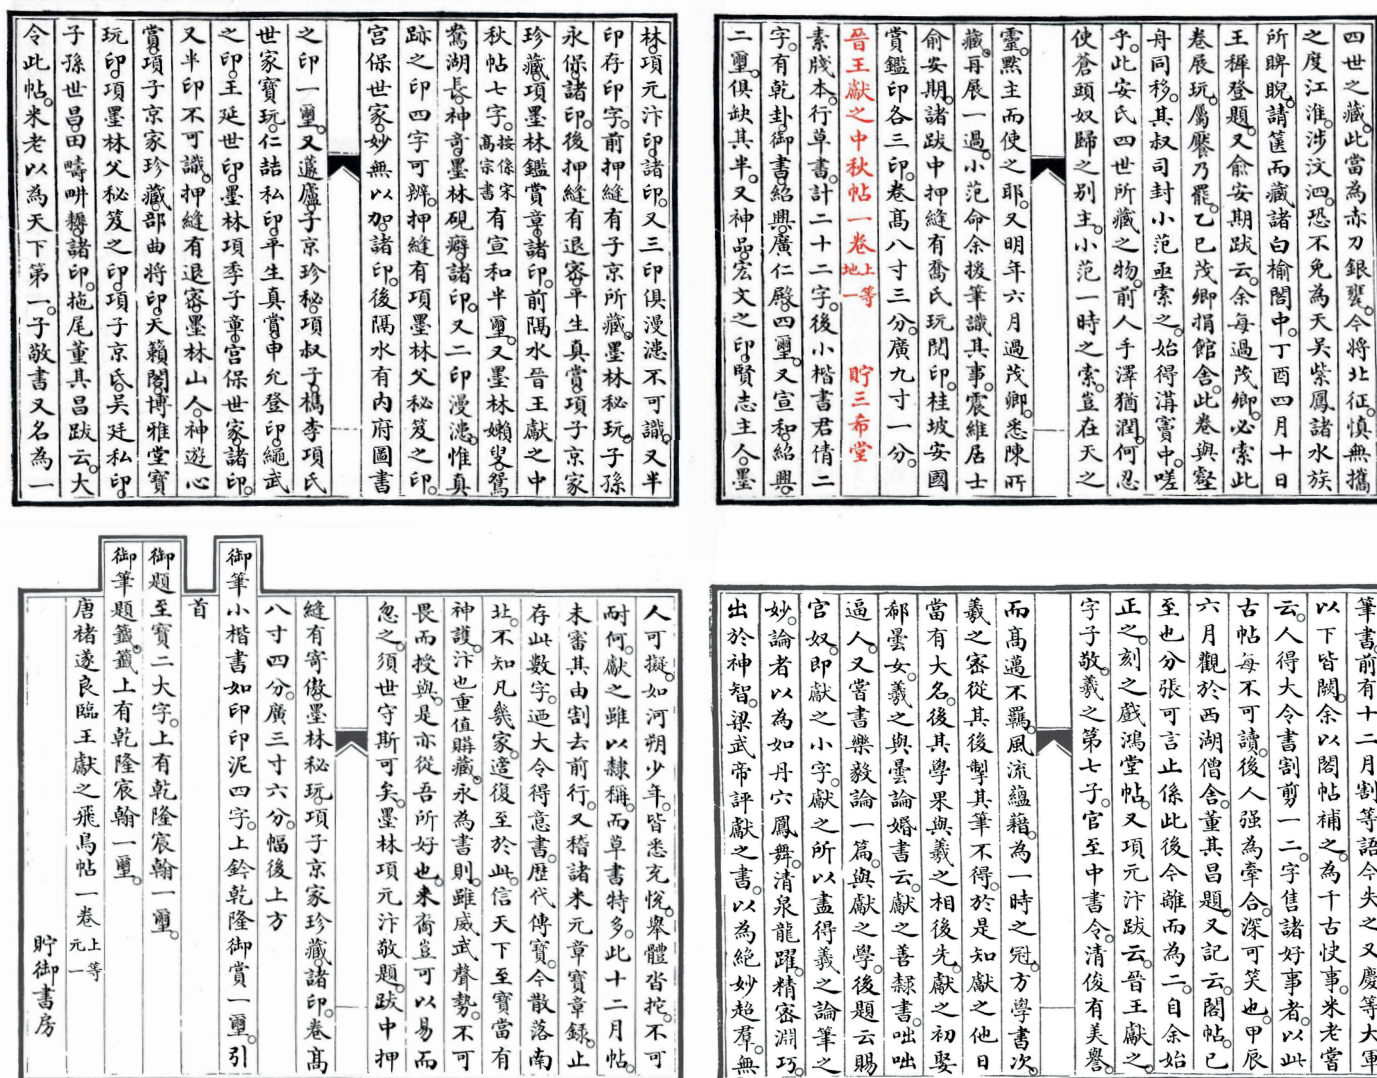 四世之藏此當為赤刀銀甖今將北征慎無攜
之度江淮涉汶泗恐不免為天吳紫鳳諸水族
所睥睨請篋而藏諸白榆閣中丁酉四月十日
王穉登題又俞安期跋云余每過茂卿必索此
卷展玩屬饜乃罷乙巳茂卿捐館舍此卷與壑
舟同移其叔司封小范亟索之始得溝竇中嗟
乎此安氏四世所藏之物前人手澤猶潤何忍
使蒼頭奴歸之别主小范一時之索豈在天之
靈黙主而使之耶又明年六月過茂卿悉陳所
藏再展一過小范命余援筆識其事震維居士
俞安期諸跋中押縫有喬氏玩閲印桂坡安國
賞鑑印各三印卷髙八寸三分廣九寸一分
晉王獻之中秋帖一卷上等地一 貯三希堂
素牋本行草書計二十二字後小楷書君倩二
字有乾卦御書紹興廣仁殿四璽又宣和紹興
二璽俱缺其半又神品宏文之印賢志主人墨
林項元汴印諸印又三印俱漫漶不可識又半
印存印字前押縫有子京所藏墨林秘玩子孫
永保諸印後押縫有退密平生真賞項子京家
珍藏項墨林鑑賞章諸印前隔水晉王獻之中
秋帖七字按係宋髙宗書有宣和半璽又墨林嬾叟鴛
鴦湖長神奇墨林硯癖諸印又二印漫漶惟真
跡之印四字可辨押縫有項墨林父秘笈之印
宮保世家妙無以加諸印後隔水有內府圖書
之印一璽又蘧廬子京珍秘項叔子檇李項氏
世家寶玩仁喆私印平生真賞申允登印繩武
之印王延世印墨林項季子章宮保世家諸印
又半印不可識押縫有退密墨林山人神遊心
賞項子京家珍藏部曲將印天籟閣博雅堂寶
玩印項墨林父秘笈之印項子京氏吳廷私印
子孫世昌田疇畊耨諸印拖尾董其昌跋云大
令此帖米老以為天下第一子敬書又名為一
筆書前有十二月割等語今失之又慶等大軍
以下皆闕余以閣帖補之為千古快事米老當
云人得大令書割剪一二字售諸好事者以此
古帖每不可讀後人强為牽合深可笑也甲辰
六月觀於西湖僧舍董其昌題又記云閣帖已
至也分張可言止係此後今離而為二自余始
正之刻之戲鴻堂帖又項元汴跋云晉王獻之
字子敬羲之第七子官至中書令清俊有美譽
而髙邁不羈風流蘊藉為一時之冠方學書次
羲之密從其後掣其筆不得於是知獻之他日
當有大名後其學果與羲之相後先獻之初娶
郗曇女羲之與曇論婚書云獻之善隸書咄咄
逼人又嘗書樂毅論一篇與獻之學後題云賜
官奴即獻之小字獻之所以盡得羲之論筆之
妙論者以為如丹穴鳳舞清泉龍躍精密淵巧
出於神智梁武帝評獻之書以為絕妙超羣無
人可擬如河朔少年皆悉充悅舉體沓拕不可
耐何獻之雖以隸稱而草書特多此十二月帖
未審其由割去前行又稽諸米元章寶章錄止
存此數字迺大令得意書歷代傳寶今散落南
北不知凡幾家適復至於此信天下至寶當有
神護汴也重值購藏永為書則雖威武聲勢不可
畏而授與是亦從吾所好也来裔豈可以易而
忽之須世守斯可矣墨林項元汴敬題跋中押
縫有寄傲墨林秘玩項子京家珍藏諸印卷髙
八寸四分廣三寸六分幅後上方
御筆小楷書如印印泥四字上鈐乾隆御賞一璽引
首
御題至寶二大字上有乾隆宸翰一璽
御筆題籤籤上有乾隆宸翰一璽
唐褚遂良臨王獻之飛鳥帖一卷上等元一
貯御書房